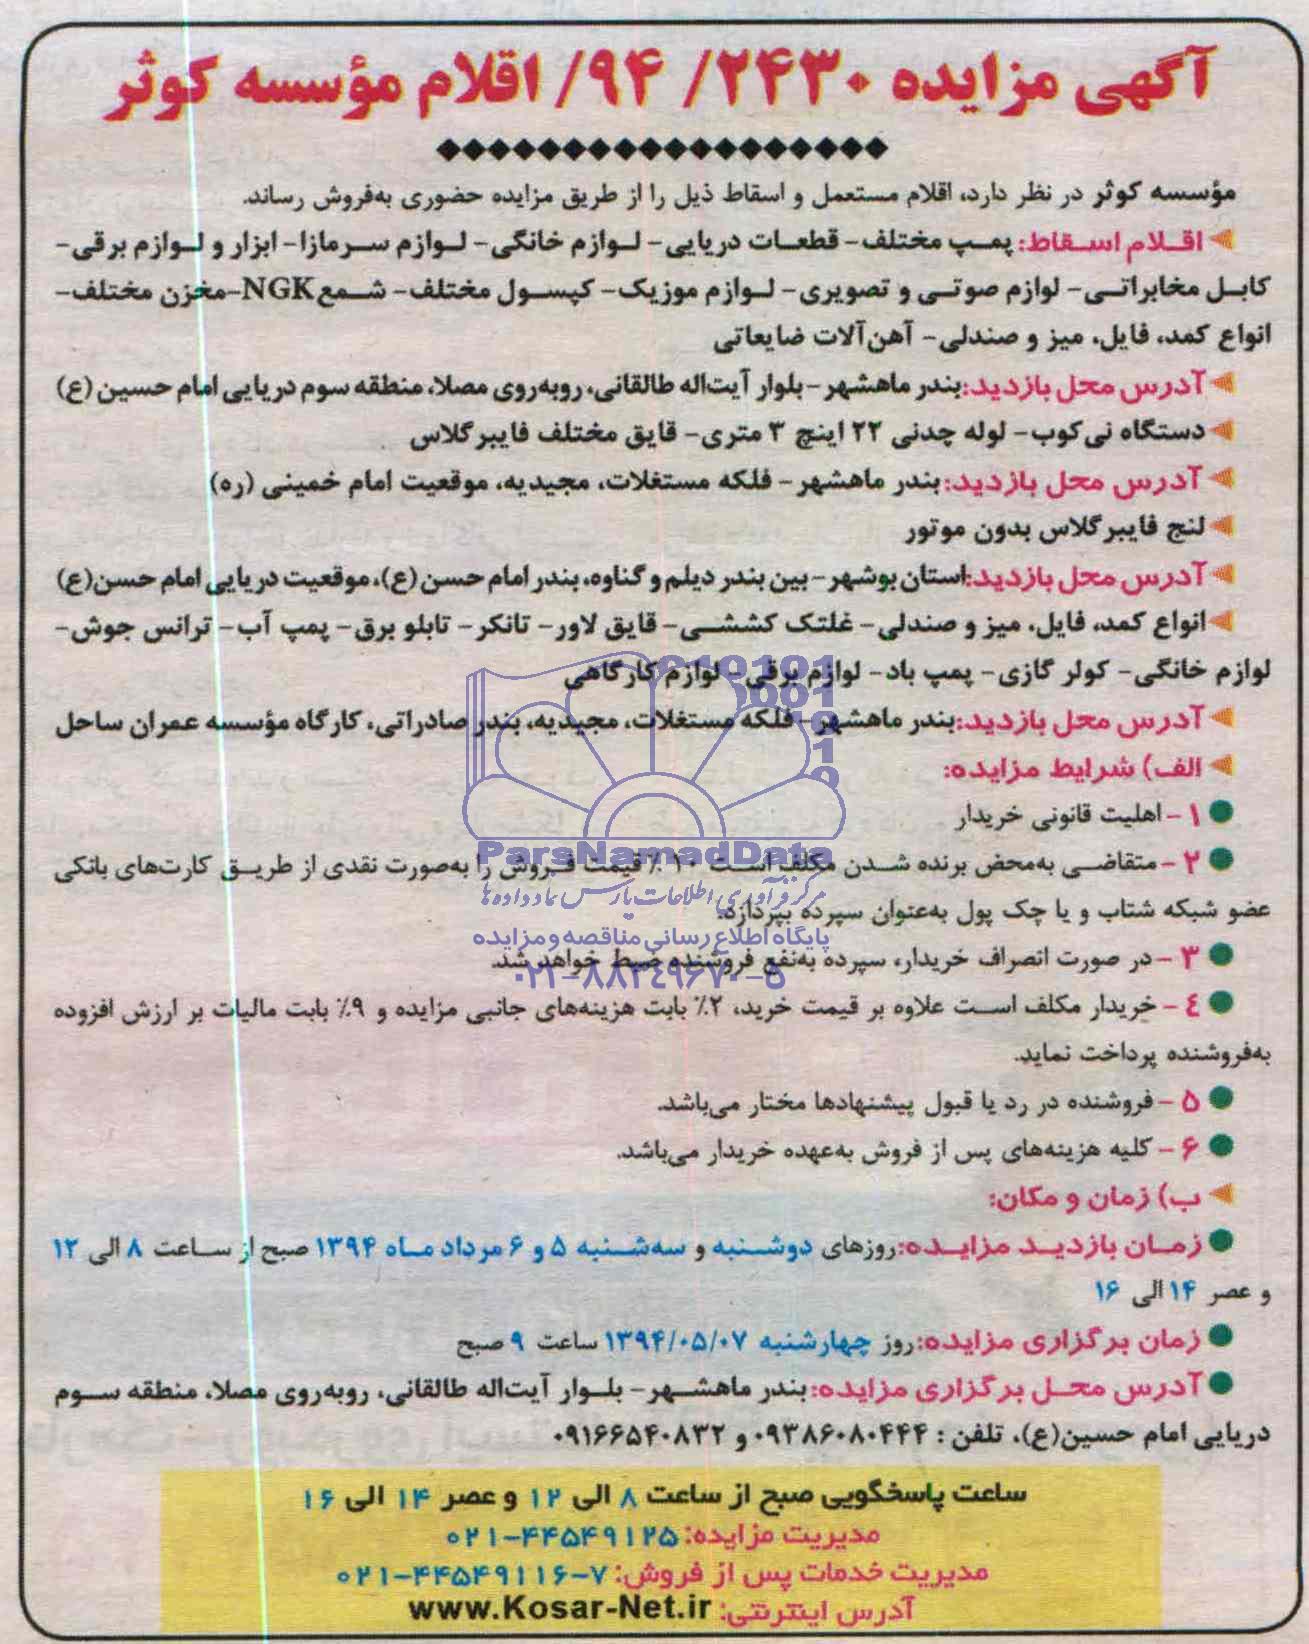 آگهی مزایده ۲۴۳۰ /۹۴/ اقلام مؤسسه کوثر
مؤسسه کوثر در نظر دارد، اقلام مستعمل و اسقاط ذیل را از طریق مزایده حضوری به‌فروش رساند.
اقلام اسقاط: پمپ مختلف- قطعات دریایی- لوازم خانگی- لوازم سرمازا- ابزار و لوازم برقی-
کابل مخابراتی- لوازم صوتی و تصویری- لوازم موزیک- کپسول مختلف- شمع NGK-مخزن مختلف-
انواع کمد، فایل، میز و صندلی- آهن‌آلات ضایعاتی
آدرس محل بازدید: بندر ماهشهر-بلوار آیت‌اله طالقانی، روبه‌روی مصلا، منطقه سوم دریایی امام حسین (ع)
دستگاه نی‌کوب- لوله چدنی ۲۲ اینچ ۳ متری- قایق مختلف فایبرگلاس
آدرس محل بازدید: بندر ماهشهر- فلکه مستغلات، مجیدیه، موقعیت امام خمینی (ره)
لنج فایبرگلاس بدون موتور
آدرس محل بازدید: استان بوشهر-بین بندر دیلم و گناوه، بندر امام حسن (ع)، موقعیت دریایی امام حسن(ع)
انواع کمد، فایل، میز و صندلی- غلتک کششی- قایق لاور- تانکر- تابلو برق- پمپ آب- ترانس جوش-
لوازم خانگی- کولر گازی- پمپ باد- لوازم برقی- لوازم کارگاهی
آدرس محل بازدید: بندر ماهشهر-فلکه مستغلات، مجیدیه، بندر صادراتی، کارگاه مؤسسه عمران ساحل
الف) شرایط مزایده:
۱- اهلیت قانونی خریدار
۲- متقاضی به‌محض برنده شدن مکلف است ۱۰٪ قیمت فروش را به‌صورت نقدی از طریق کارت‌های بانکی
عضو شبکه شتاب و یا چک پول به‌عنوان سپرده بپردازد.
۳- در صورت انصراف خریدار، سپرده به‌نفع فروشنده ضبط خواهد شد.
٤- خریدار مکلف است علاوه بر قیمت خرید، ۲٪ بابت هزینه‌های جانبی مزایده و ۹٪ بابت مالیات بر ارزش افزوده
به‌فروشنده پرداخت نماید.
۵- فروشنده در رد یا قبول پیشنهادها مختار می‌باشد.
۶- کلیه هزینه‌های پس از فروش به‌عهده خریدار می‌باشد.
ب) زمان و مکان:
زمان بازدید مزایده: روزهای دوشنبه و سه‌شنبه ۵ و ۶ مرداد ماه ۱۳۹۴ صبح از ساعت ۸ الی ۱۲
و عصر ۱۴ الی ۱۶
زمان برگزاری مزایده: روز چهارشنبه ۱۳۹۴/۰۵/۰۷ ساعت ۹ صبح
آدرس محل برگزاری مزایده: بندر ماهشهر- بلوار آیت‌اله طالقانی، روبه‌روی مصلا، منطقه سوم
دریایی امام حسین(ع)، تلفن: ۰۹۳۸۶۰۸۰۴۴۴ و ۰۹۱۶۶۵۴۰۸۳۲
ساعت پاسخگویی صبح از ساعت ۸ الی ۱۲ و عصر ۱۴ الی ۱۶
مدیریت مزایده: ۰۲۱-۴۴۵۴۹۱۲۵
مدیریت خدمات پس از فروش: ۰۲۱-۴۴۵۴۹۱۱۶-۷
آدرس اینترنتی: www.Kosar-Net.ir
ParsNamadData
مرکز فرآوری اطلاعات پارس نماد داده‌ها
پایگاه اطلاع رسانی مناقصه و مزایده
۰۲۱-۸۸۳۴۹۶۷۰-۵